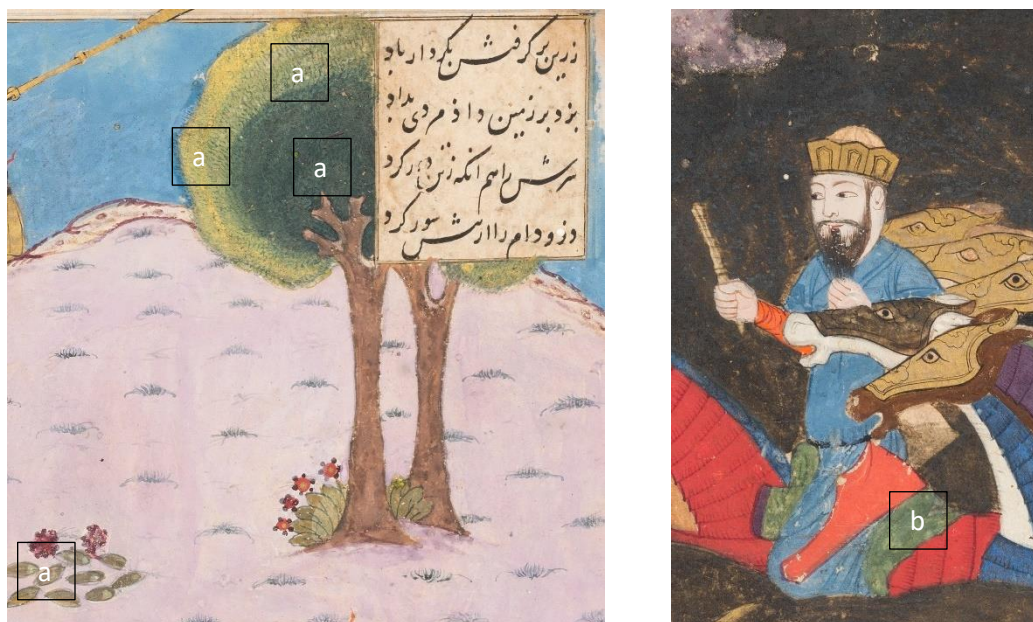 زرین برگرفتش بکردار باد
بزد بر زمین داذ مردی بداد
سرش را هم انکه زتن دور کرد
دذ و دام را ازتنش سور کرد
a
a
a
a
b